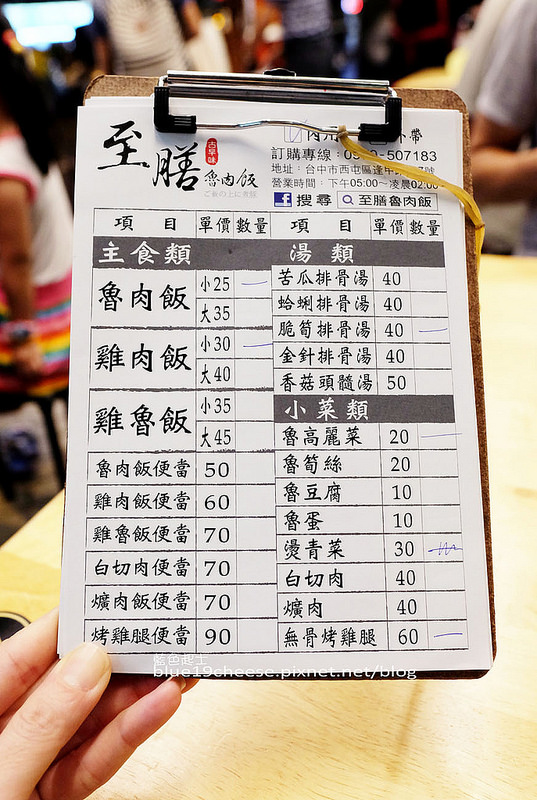 至膳
古早味
魯肉飯
內用
外帶
訂購專線：0
-507183
地址：台中市西屯區逢甲
號
營業時間：下午05:00～凌晨02:00
f 搜尋 至膳魯肉飯
項 目 單價 數量 項 目 單價 數量
主食類
魯肉飯 小25 一
大35
雞肉飯 小30 一
大40
雞魯飯 小35
大45
魯肉飯便當 50
雞肉飯便當 60
雞魯飯便當 70
白切肉便當 70
爌肉飯便當 70
烤雞腿便當 90
湯類
苦瓜排骨湯 40
蛤蜊排骨湯 40
脆筍排骨湯 40 一
金針排骨湯 40
香菇頭髓湯 50
小菜類
魯高麗菜 20 一
魯筍絲 20
魯豆腐 10
魯蛋 10
燙青菜 30
白切肉 40
爌肉 40
無骨烤雞腿 60 一
藍色起士
blue19cheese.pixnet.net/blog